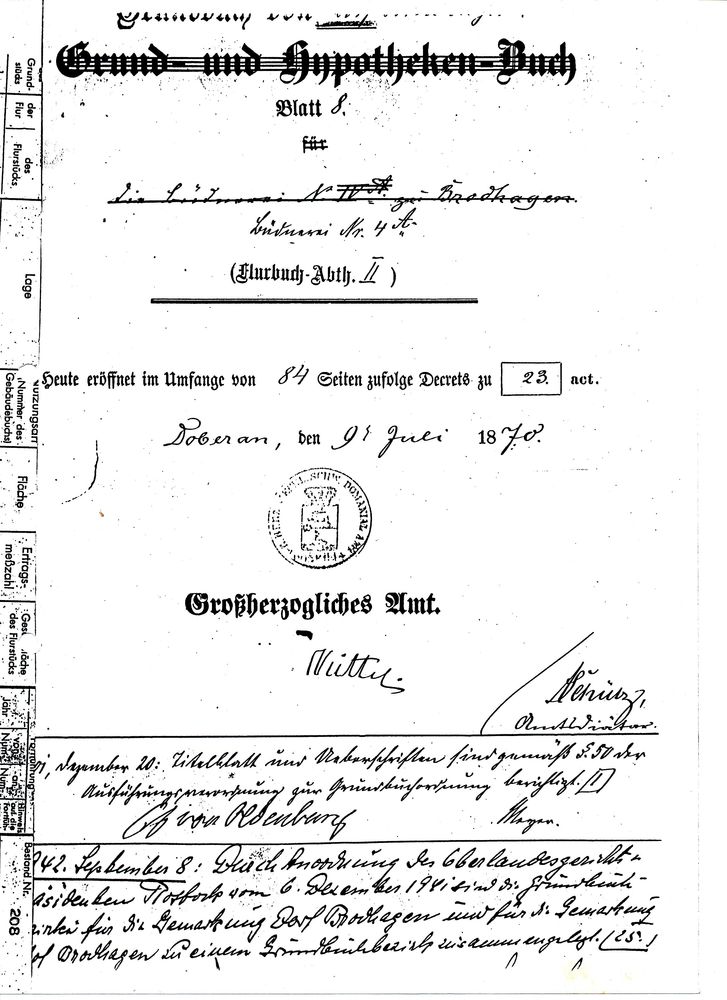 Grundbuch von
Grund- und Hypotheken-Buch
Blatt 8.
für
die Büdnerei No IV A. zu Brodhagen.
Büdnerei Nr. 4 A.
(Flurbuch-Abth. II )
Heute eröffnet im Umfange von 84 Seiten zufolge Decrets zu 23. act.
Doberan, den 9t Juli 1870.
Großherzogliches Amt.
Amtsdiätar.
Dezember 20: Titelblatt und Ueberschriften sind gemäß §. 50 der
Ausführungsverordnung zur Grundbuchordnung berichtigt. (1)
von Oldenburg Meyer.
42. September 8: Durch Anordnung des Oberlandesgerichts-
äsidenten Rostock vom 6. Dezember 1941 sind die Grundbuch-
für die Gemarkung Dorf Brodhagen und für die Gemarkung
of Brodhagen zu einem Grundbuchbezirk zusammengelegt. (25.)
Grund-
stücks
der
Flur
des
Flurstücks
Lage
Nutzungsart
Nummer des
Gebäudebuchs
Fläche
Ertrags-
meßzahl
des Flurstücks
Jahr
Bestand Nr.
208